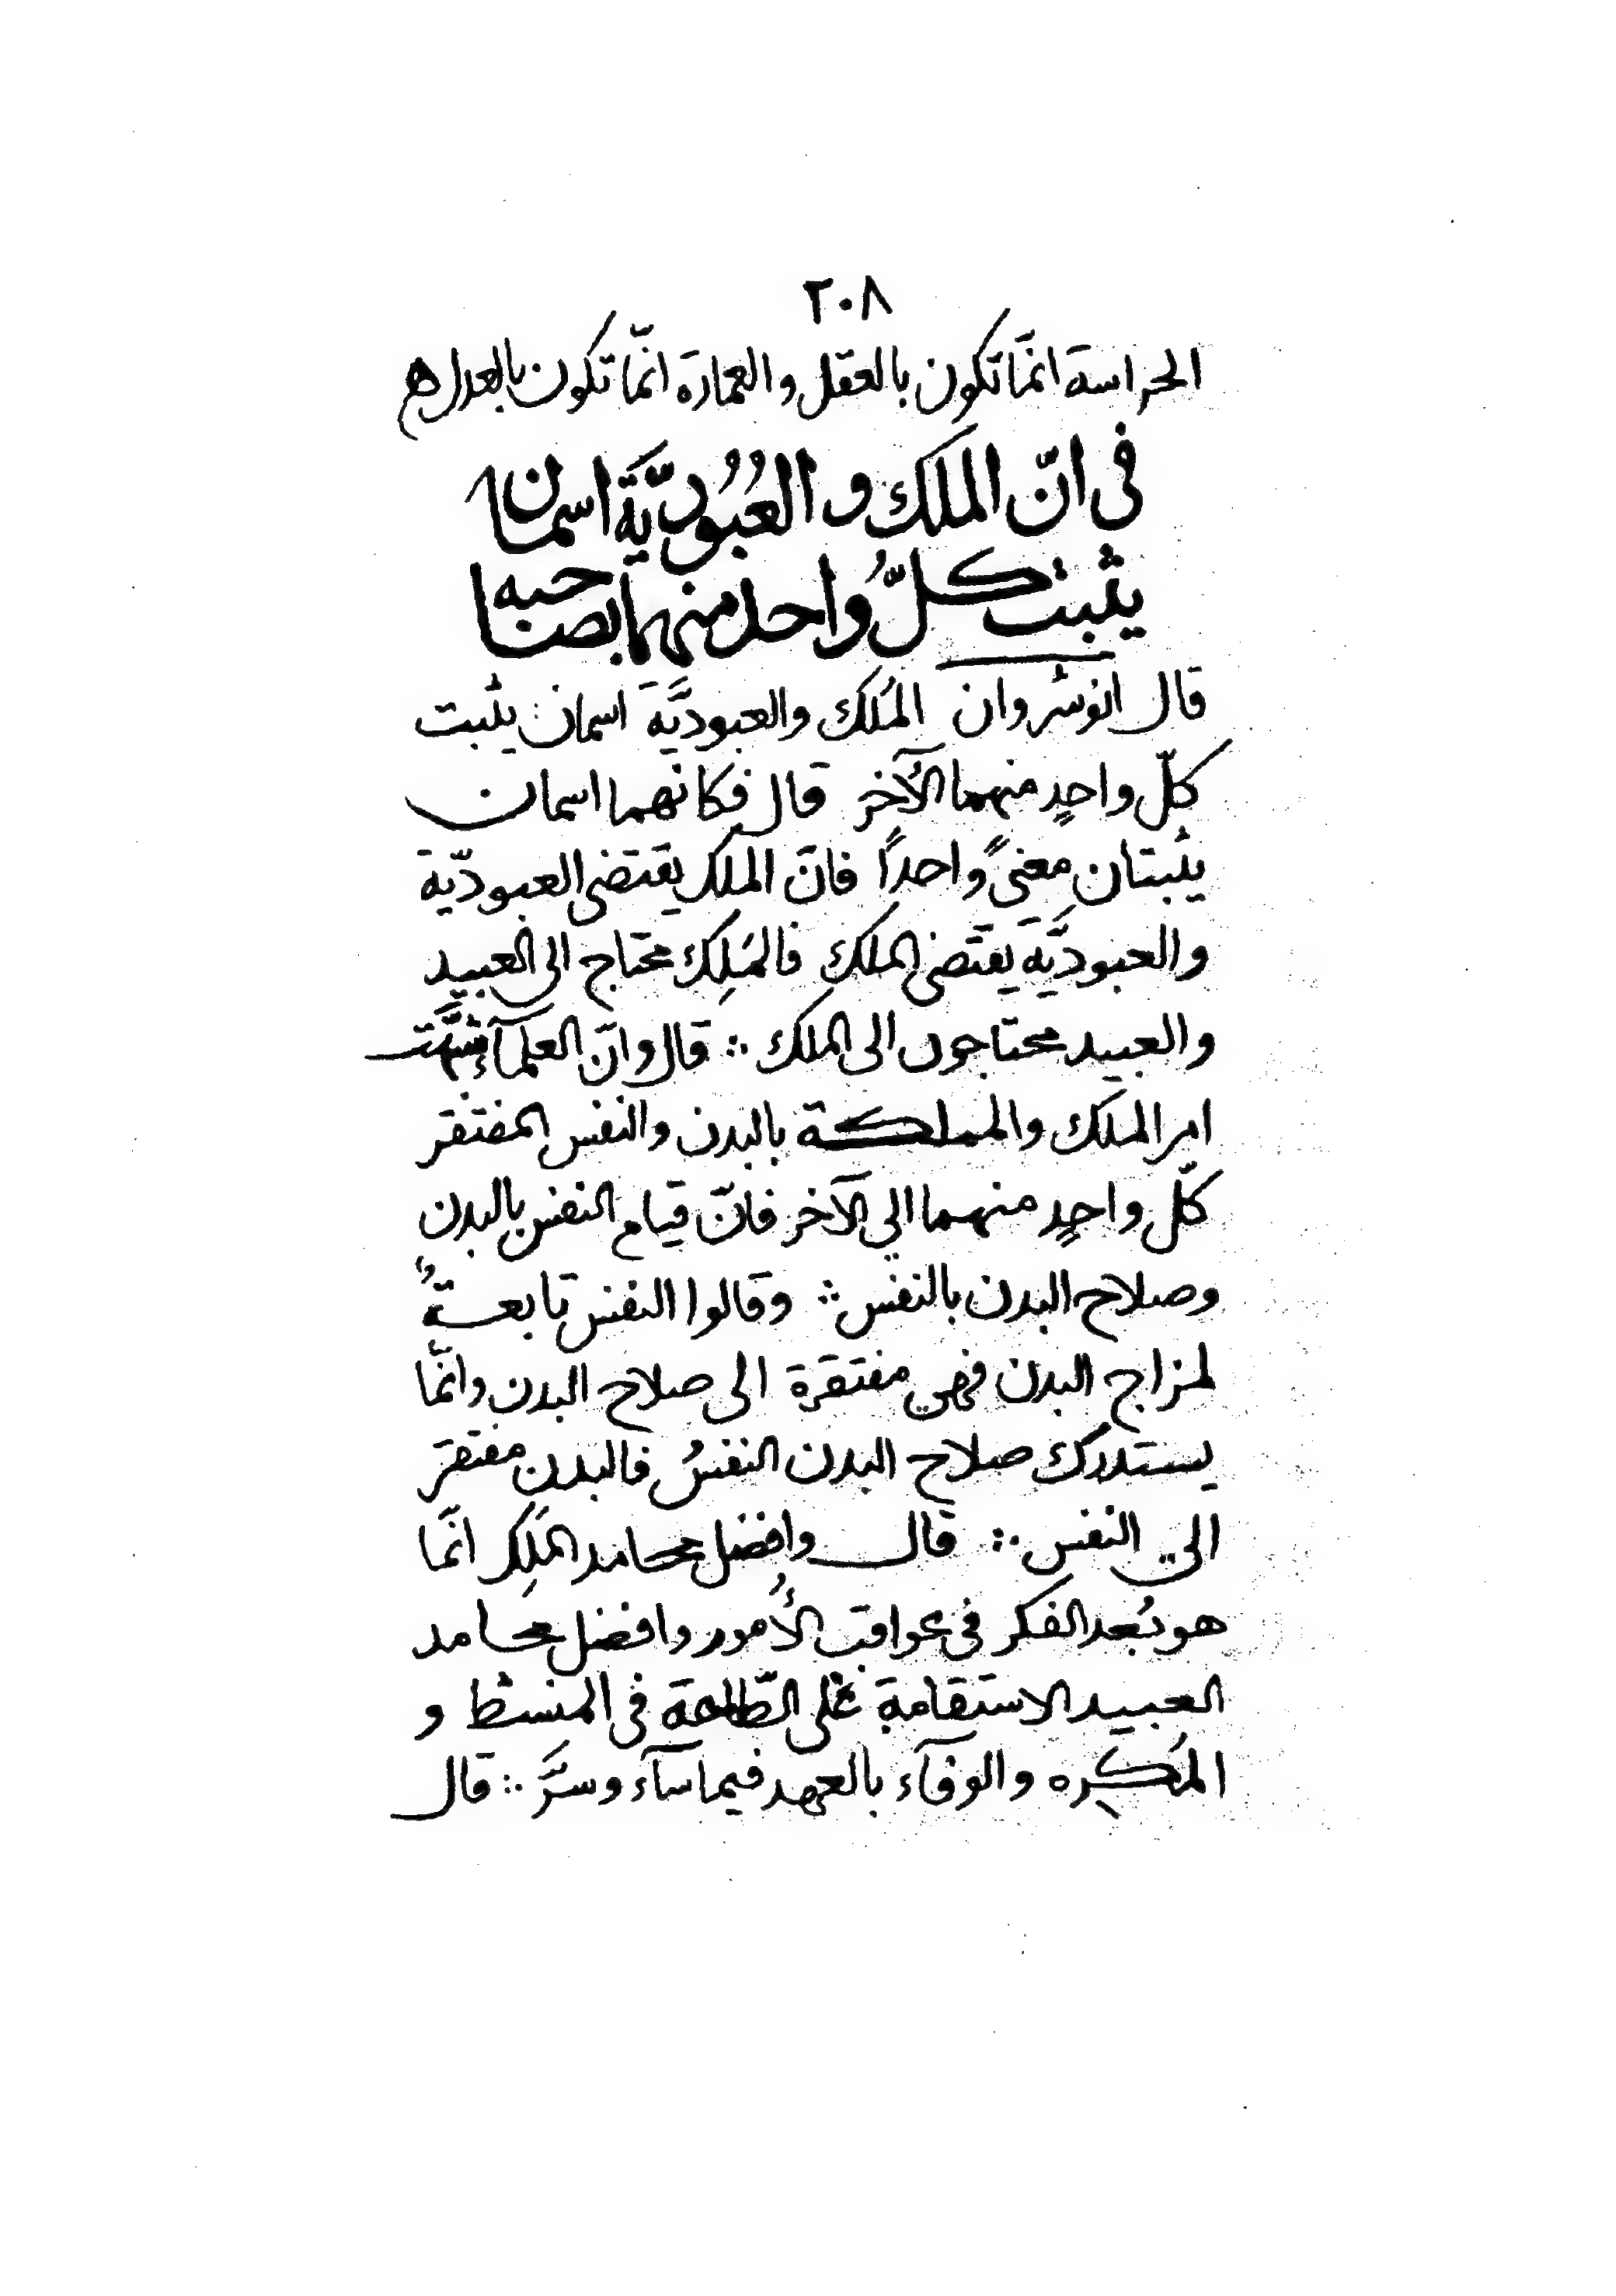 ٢٠٨
الحراسة انّما تكون بالعقل والعمارة انّما تكون بالعدل هم
فى انّ الملك والعُبُوديَّة اسمان
يثبت كلُّ واحد منهما بصاحبه
قال انوشروان المُلك والعبوديَّة اسمان يثبت
كلّ واحدٍ منهما الآخر قال فكانهما اسمان
يثبتان معنىً واحداً فانّ الملك يقتضى العبوديّة
والعبوديَّة يقتضى الملك فالمَلِك محتاج الى العبيد
والعبيد محتاجون الى الملك ∴ قال وانّ العلمآء شبَّهت
امر الملك والمملكة بالبدن والنفس المفتقر
كلّ واحدٍ منهما الي الآخر فانّ قيام النفس بالبدن
وصلاح البدن بالنفس ∴ وقالوا النفس تابعةٌ
لمزاج البدن فهي مفتقرة الى صلاح البدن وانّما
يستدرك صلاح البدن النفسُ فالبدن مفتقر
الي النفس ∴ قال وافضل محامد المَلِك انّما
هو بُعد الفكر فى عواقب الأُمور وافضل محامد
العبيد الاستقامة على الطّاعة فى المنشط و
المَكره والوفآء بالعهد فيما سآء وسرَّ ∴ قال